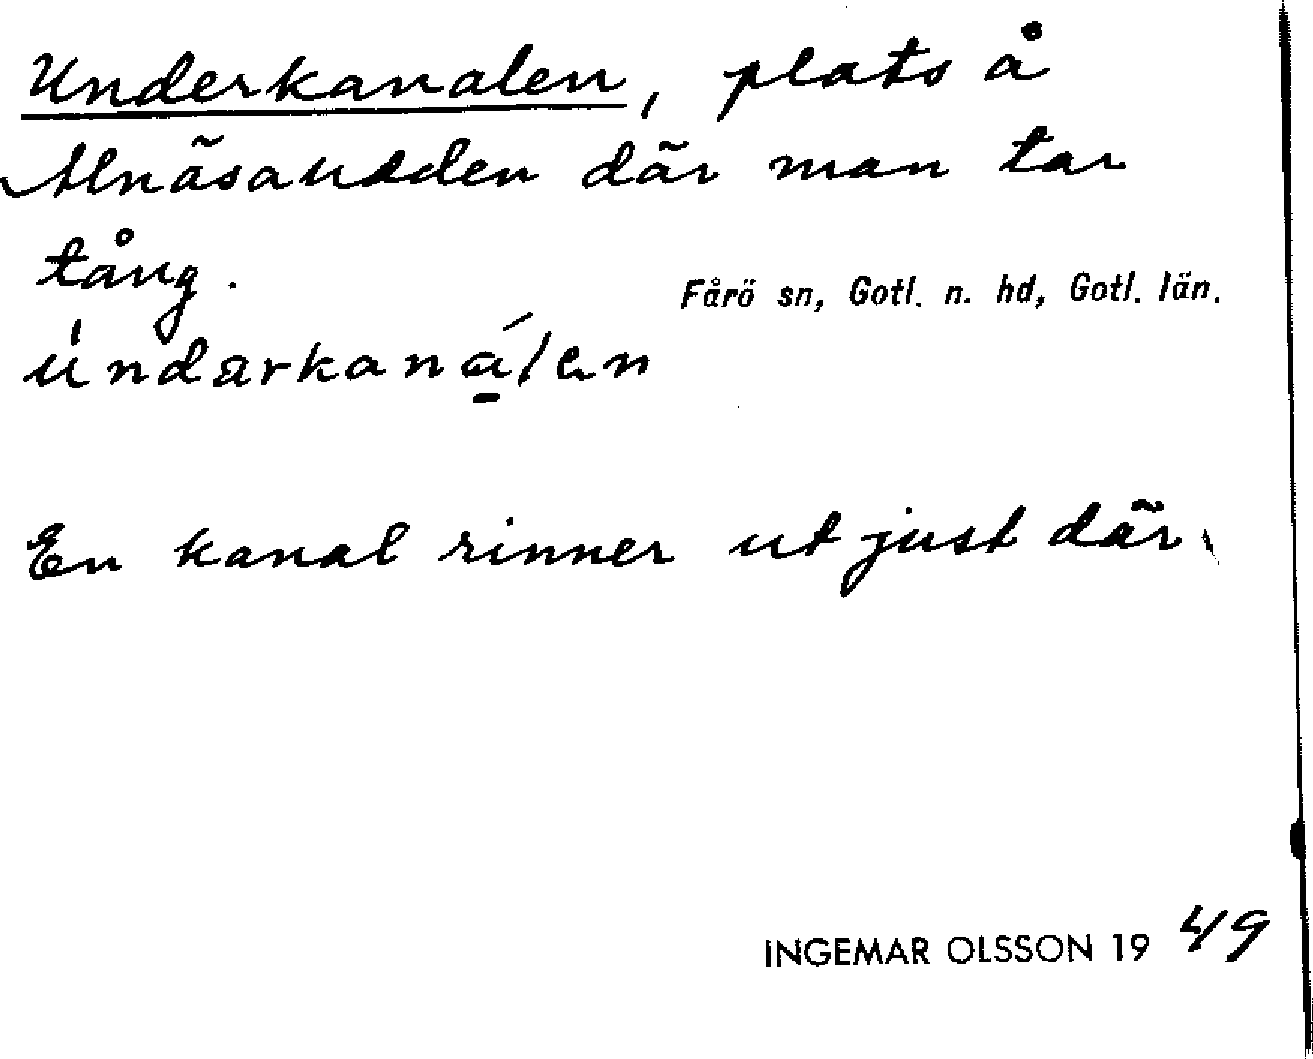 Underkanalen, plats å
Alnäsaudden där man tar
tång.
Fårö sn, Gotl. n. hd, Gotl. län.
úndarkaná̱len
En kanal rinner ut just där.
INGEMAR OLSSON 19 49